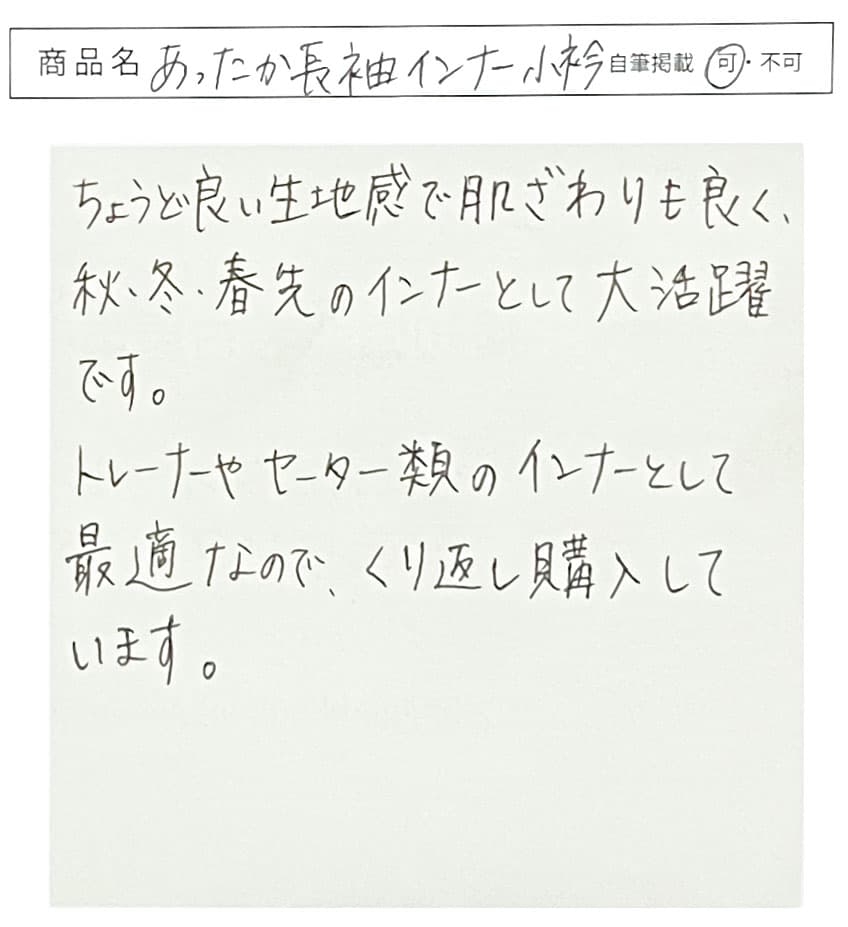 商品名 あったか長袖インナー小衿 自筆掲載 可・不可
ちょうど良い生地感で肌ざわりも良く、
秋、冬、春先のインナーとして大活躍
です。
トレーナーやセーター類のインナーとして
最適なので、くり返し購入して
います。